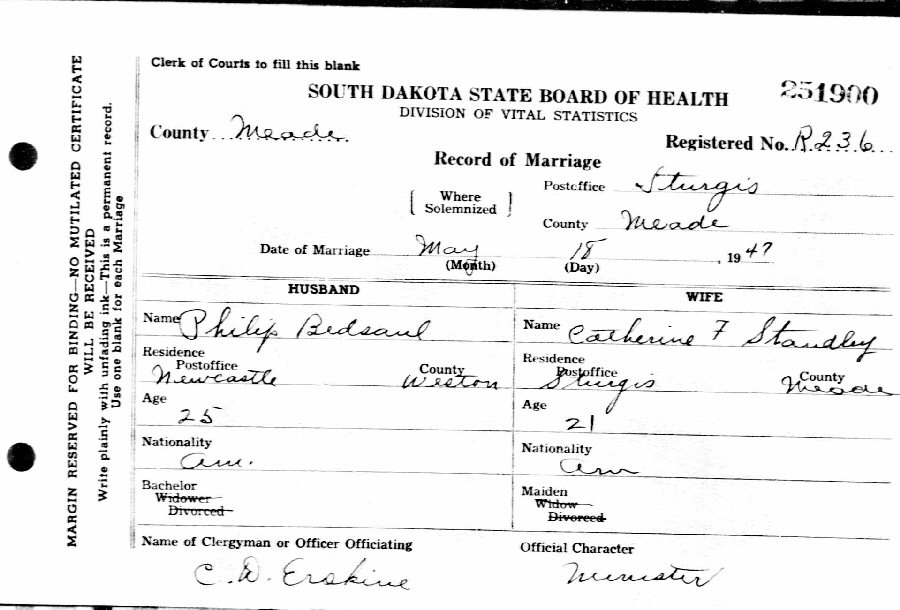 Clerk of Courts to fill this blank
SOUTH DAKOTA STATE BOARD OF HEALTH 251900
DIVISION OF VITAL STATISTICS
County Meade Registered No. R236
Record of Marriage
{ Where Solemnized } Postoffice Sturgis
County Meade
Date of Marriage May 18, 1947
(Month) (Day)
HUSBAND WIFE
Name Philip Bedsaul Name Catherine F Standley
Residence Residence
Postoffice Newcastle County Weston Postoffice Sturgis County Meade
Age 25 Age 21
Nationality Am. Nationality Am
Bachelor Maiden
Widower Widow
Divorced Divorced
Name of Clergyman or Officer Officiating Official Character
C. D. Erskine Minister
MARGIN RESERVED FOR BINDING—NO MUTILATED CERTIFICATE
WILL BE RECEIVED
Write plainly with unfading ink—This is a permanent record.
Use one blank for each Marriage